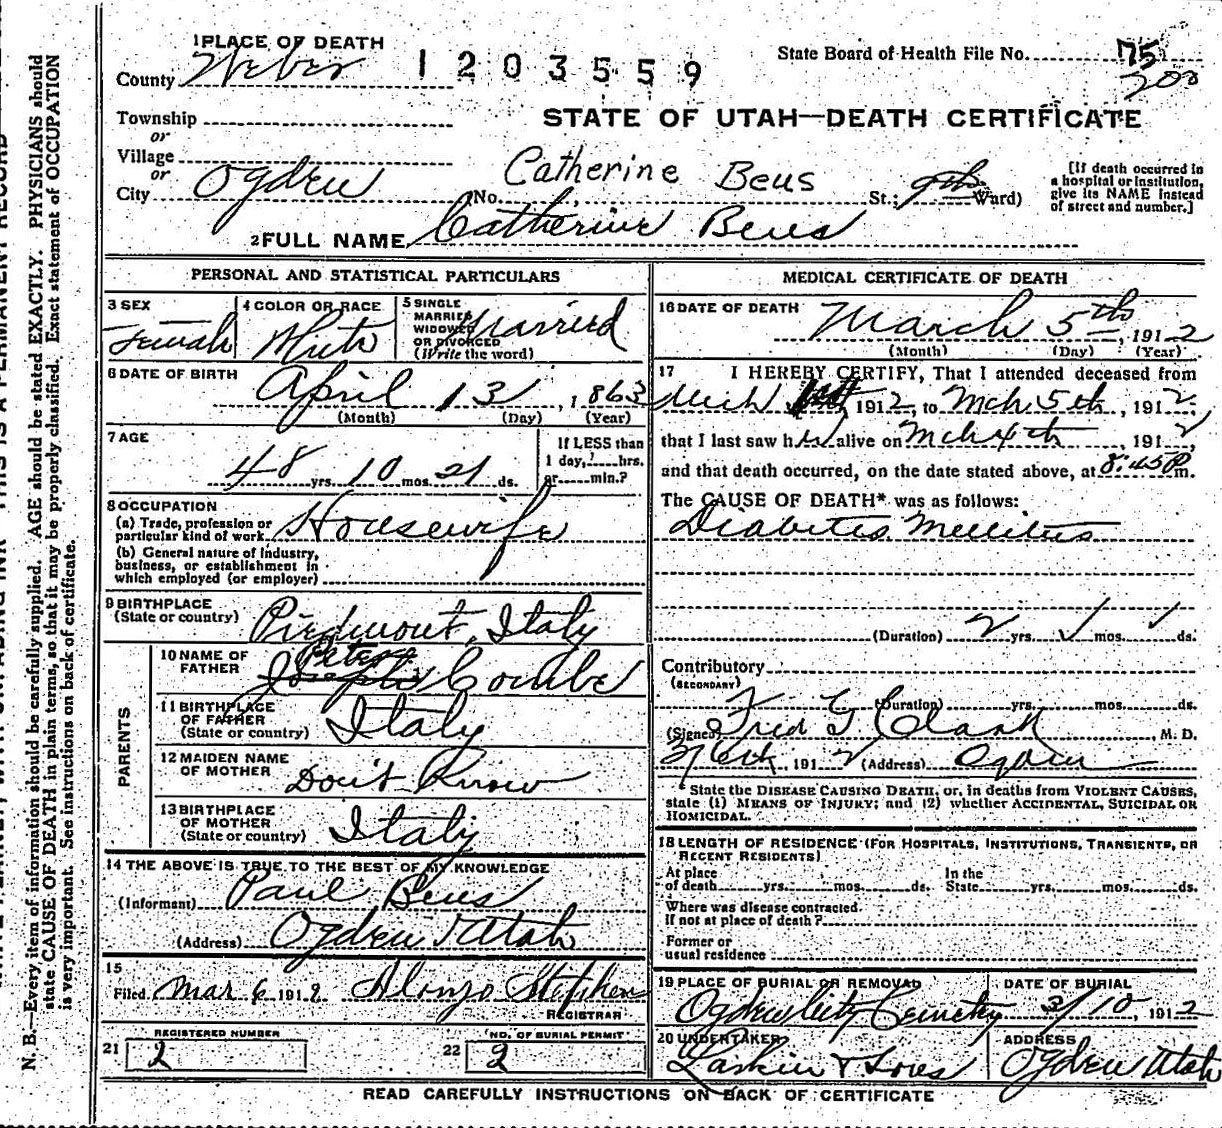 1 PLACE OF DEATH
County Weber 1203559 State Board of Health File No. 75
200
Township
or
STATE OF UTAH—DEATH CERTIFICATE
Village
or
City Ogden (No. Catherine Beus St.; 9th Ward)
[If death occurred in
a hospital or institution,
give its NAME instead
of street and number.]
2 FULL NAME Catherine Beus
PERSONAL AND STATISTICAL PARTICULARS
3 SEX
Female
4 COLOR OR RACE
White
5 SINGLE
MARRIED
WIDOWED
OR DIVORCED
(Write the word)
Married
6 DATE OF BIRTH
April 13, 1863
(Month) (Day) (Year)
7 AGE
48 yrs. 10 mos. 21 ds.
If LESS than
1 day, ? hrs.
or min.?
8 OCCUPATION
(a) Trade, profession or
particular kind of work Housewife
(b) General nature of industry,
business, or establishment in
which employed (or employer)
9 BIRTHPLACE
(State or country) Piedmont, Italy
PARENTS
10 NAME OF
FATHER Joseph Peter Combe
11 BIRTHPLACE
OF FATHER
(State or country) Italy
12 MAIDEN NAME
OF MOTHER Don't Know
13 BIRTHPLACE
OF MOTHER
(State or country) Italy
14 THE ABOVE IS TRUE TO THE BEST OF MY KNOWLEDGE
(Informant) Paul Beus
(Address) Ogden Utah
15
Filed Mar 6 1912 Alonzo Stephens
REGISTRAR
REGISTERED NUMBER
21 2
NO. OF BURIAL PERMIT
22 2
MEDICAL CERTIFICATE OF DEATH
16 DATE OF DEATH March 5th, 1912
(Month) (Day) (Year)
17 I HEREBY CERTIFY, That I attended deceased from
Mch 1st, 1912, to Mch 5th, 1912,
that I last saw her alive on Mch 4th, 1912,
and that death occurred, on the date stated above, at 8:45 P m.
The CAUSE OF DEATH* was as follows:
Diabetes Mellitus
(Duration) 2 yrs. mos. ds.
Contributory
(SECONDARY)
(Duration) yrs. mos. ds.
(Signed) Fred G Clark, M. D.
3/6th, 1912 (Address) Ogden
*State the DISEASE CAUSING DEATH, or, in deaths from VIOLENT CAUSES,
state (1) MEANS OF INJURY; and (2) whether ACCIDENTAL, SUICIDAL OR
HOMICIDAL.
18 LENGTH OF RESIDENCE (FOR HOSPITALS, INSTITUTIONS, TRANSIENTS, OR
RECENT RESIDENTS)
At place In the
of death yrs. mos. ds. State yrs. mos. ds.
Where was disease contracted.
If not at place of death?
Former or
usual residence
19 PLACE OF BURIAL OR REMOVAL
Ogden City Cemetry
DATE OF BURIAL
3/10, 1912
20 UNDERTAKER
Larkin & Sons
ADDRESS
Ogden Utah
READ CAREFULLY INSTRUCTIONS ON BACK OF CERTIFICATE
N. B.—Every item of information should be carefully supplied. AGE should be stated EXACTLY. PHYSICIANS should
state CAUSE OF DEATH in plain terms, so that it may be properly classified. Exact statement of OCCUPATION
is very important. See instructions on back of certificate.